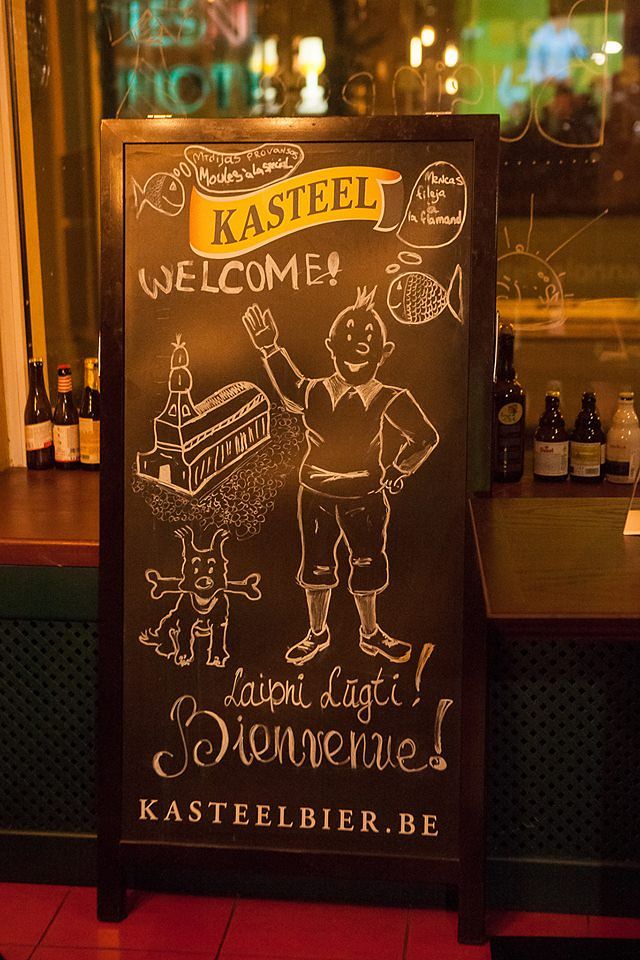 Mīdijas Provansas
Moules à la special
KASTEEL
Mencas
fileja
a
la flamand
WELCOME!
Laipni Lūgti!
Bienvenue!
KASTEELBIER.BE